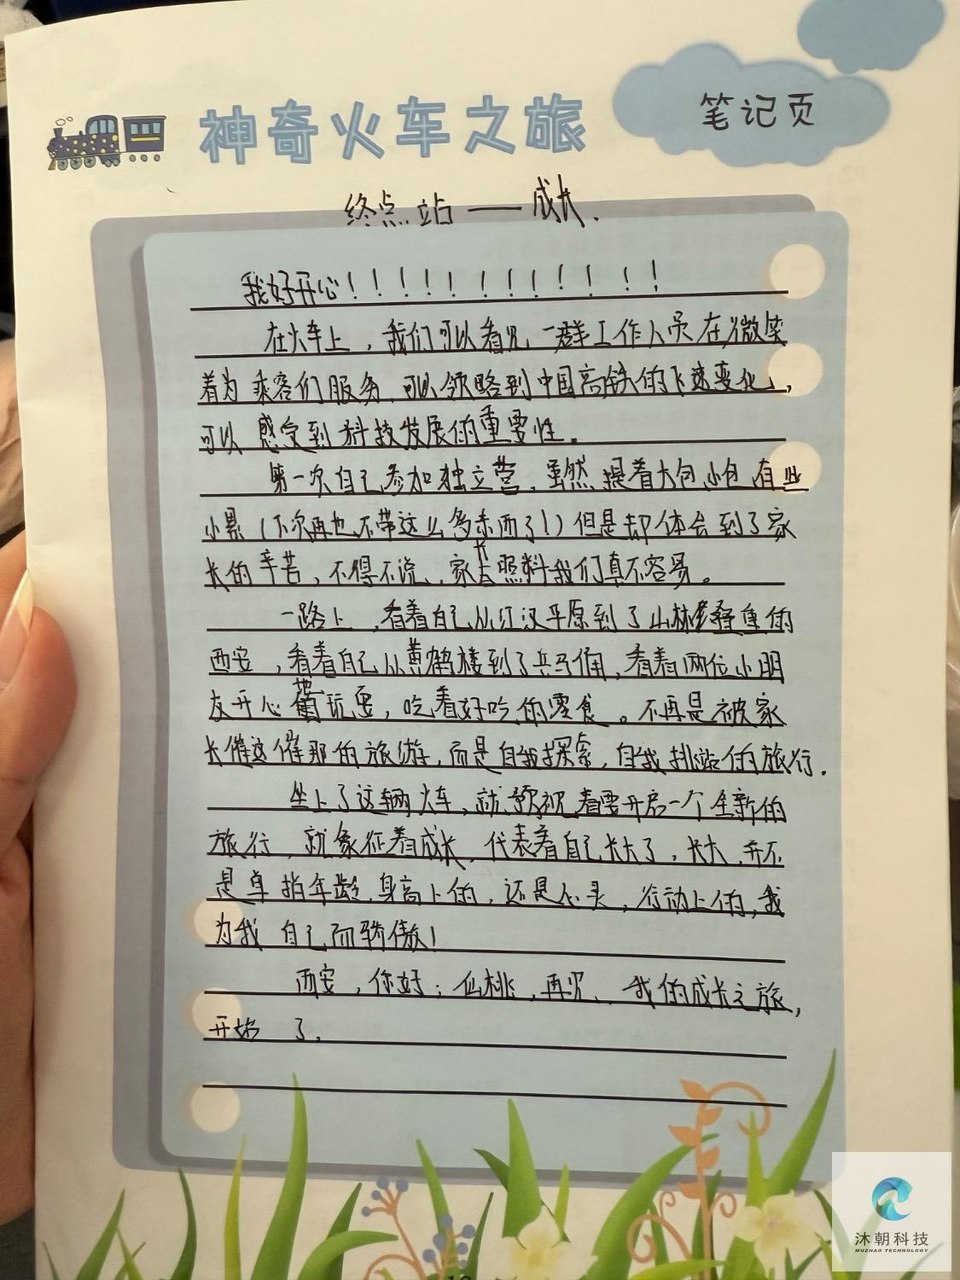 神奇火车之旅
笔记页
终点站——成长.
我好开心！！！！！！！！！！！！
在火车上，我们可以看见一群工作人员在微笑
着为乘客们服务，可以领略到中国高铁的飞速变化，
可以感受到科技发展的重要性。
第一次自己参加独立营，虽然提着大包小包有些
小累（下次再也不带这么多东西了！）但是却体会到了家
长的辛苦，不得不说，家长照料我们真不容易。
一路上，看着自己从江汉平原到了山林重的
西安，看着自己从黄鹤楼到了兵马俑，看着两位小朋
友开心玩耍，吃着好吃的零食。不再是被家
长催这催那的旅游，而是自我探索，自我挑战的旅行.
坐上了这辆火车，就预祝着要开启一个全新的
旅行，就象征着成长，代表着自己长大了，长大，并不
是单指年龄身高上的，还是心灵，行动上的，我
为我自己而骄傲！
西安，你好；仙桃，再见，我的成长之旅，
开始了.
沐朝科技
MUZHAO TECHNOLOGY